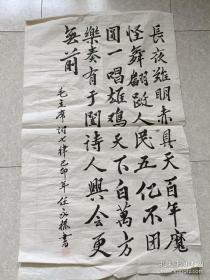 長夜難明赤县天百年魔
怪舞翩跹人民五亿不团
圆一唱雄鸡天下白萬方
樂奏有于阗诗人興会更
無前
毛主席詞七律己卯年任永振書